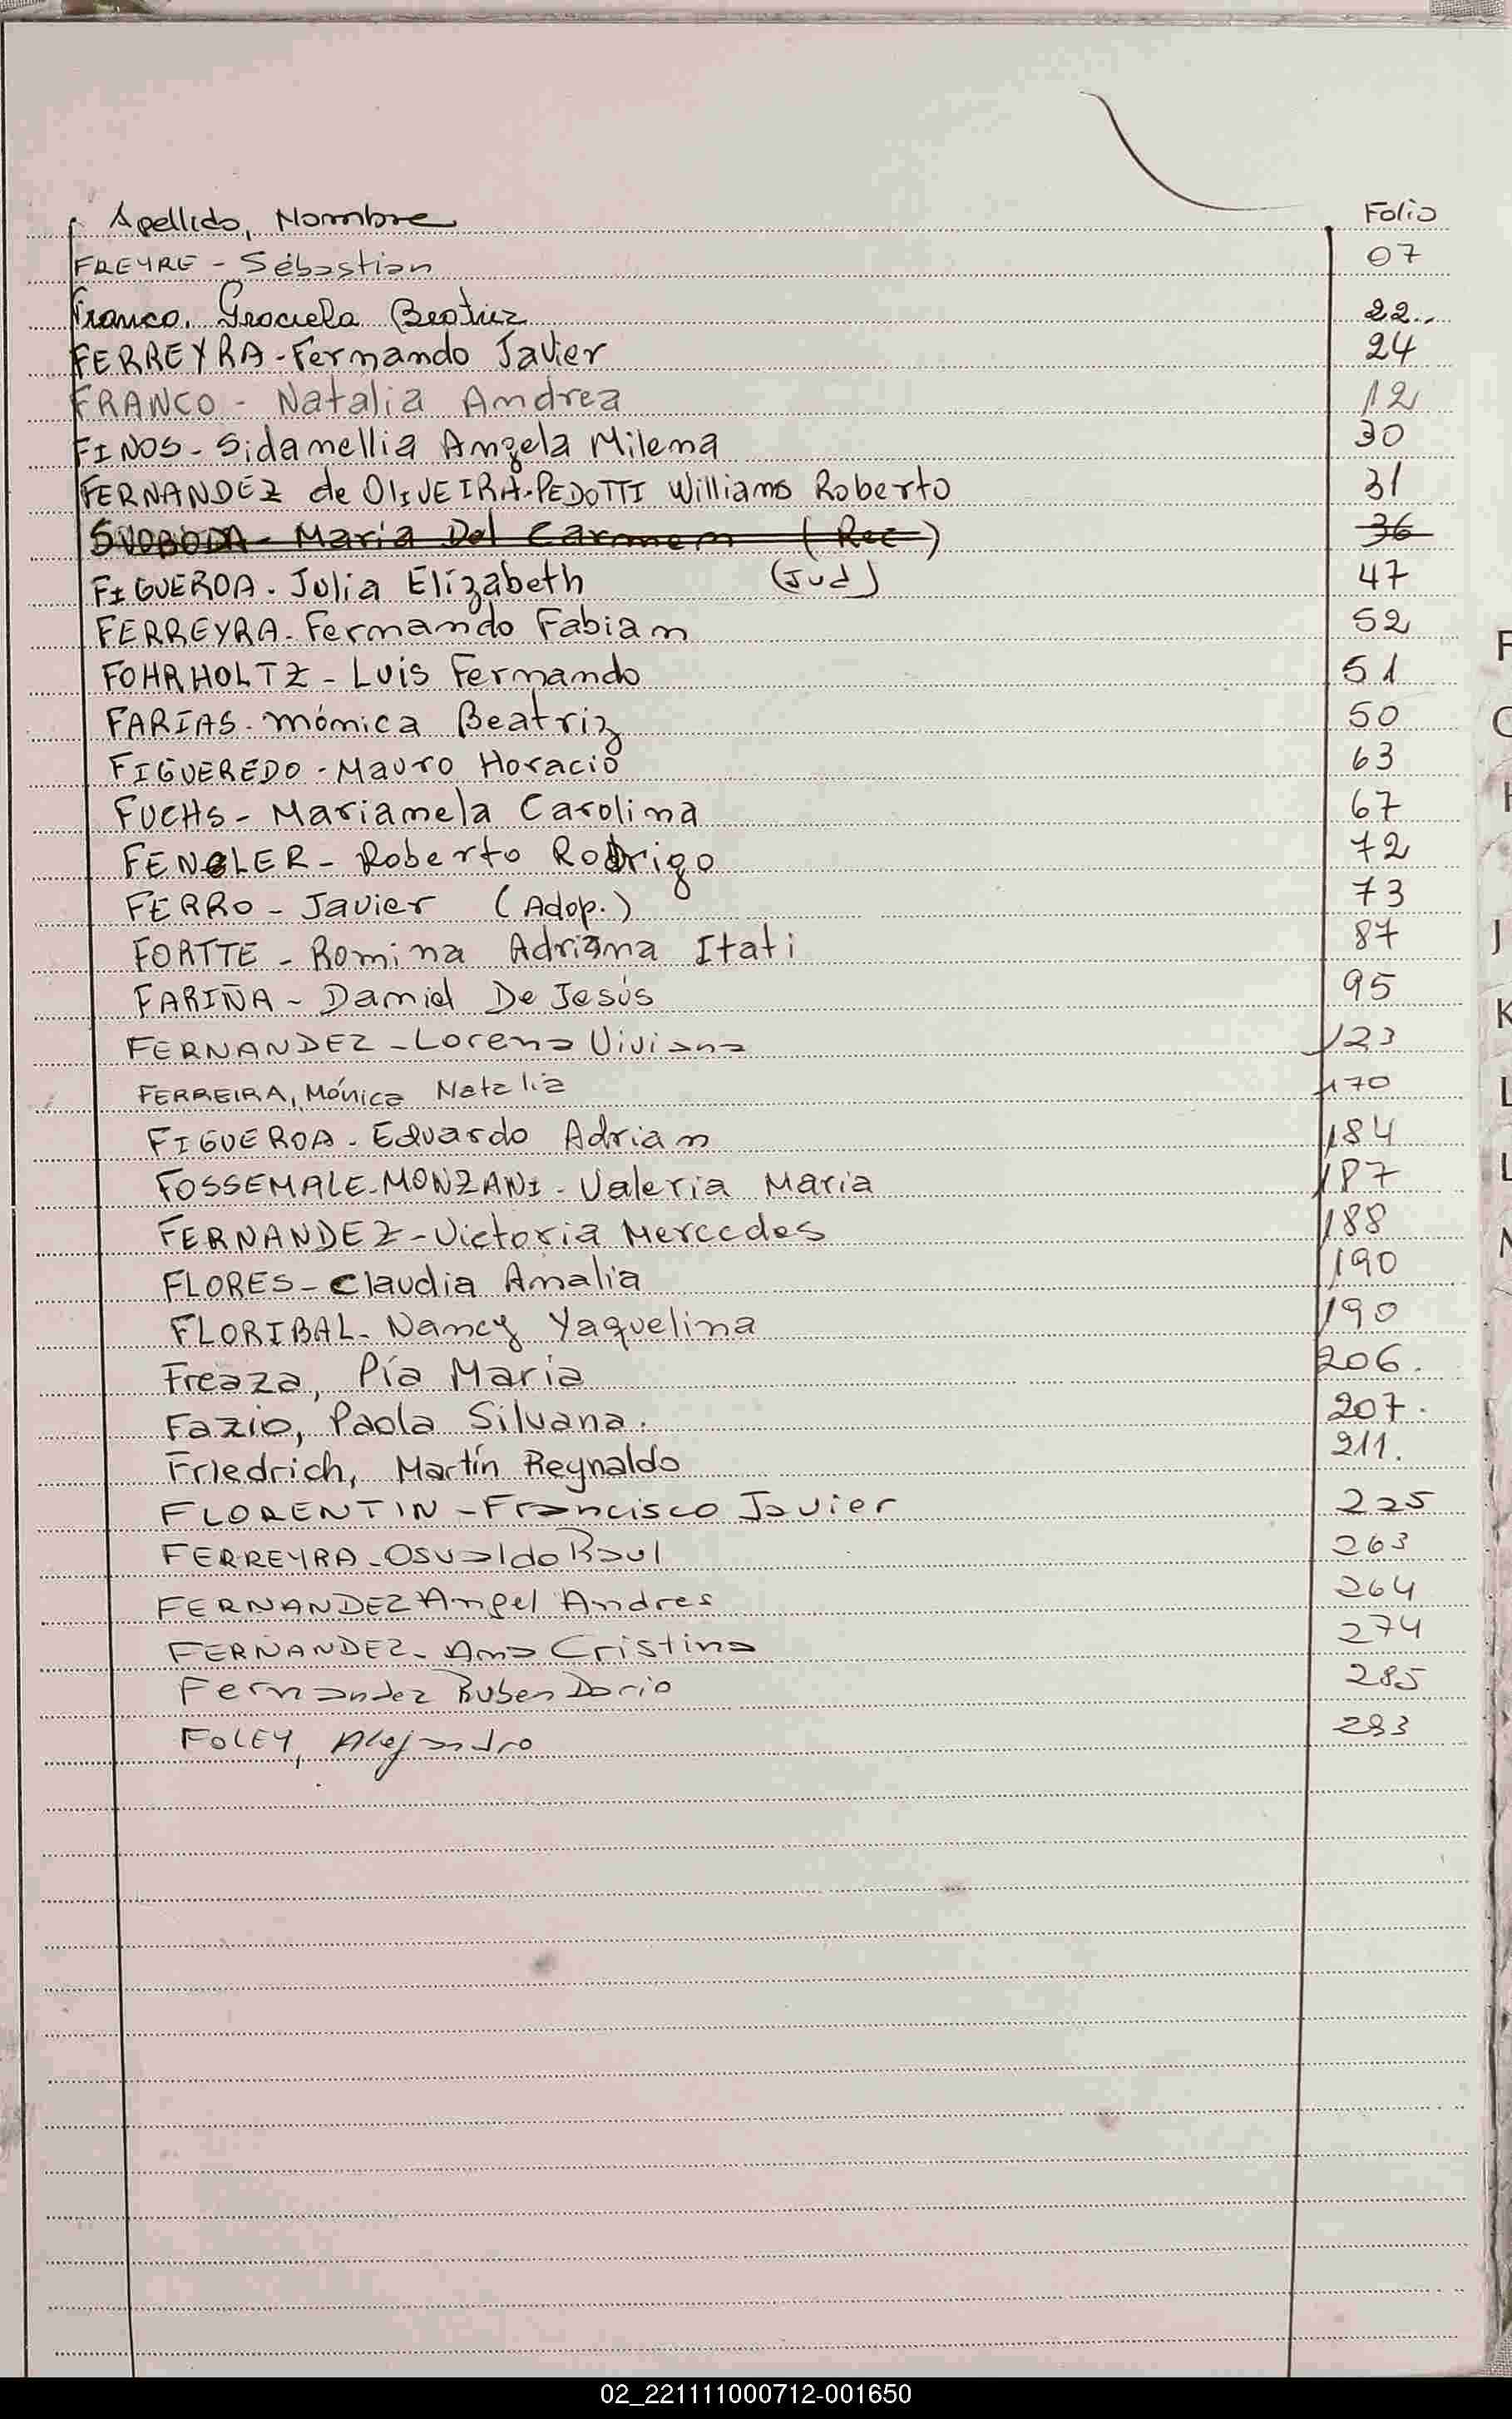 Apellido, Nombre Folio
FREYRE - Sebastian 07
Franco. Graciela Beatriz 22..
FERREYRA - Fernando Javier 24
FRANCO - Natalia Andrea 12
FINOS - Sidamellia Angela Milena 30
FERNANDEZ de OLIVEIRA-PEDOTTI Williams Roberto 31
SVOBODA - Maria Del Carmen (Rec) 36
FIGUEROA - Julia Elizabeth (Jud) 47
FERREYRA - Fernando Fabian 52
FOHRHOLTZ - Luis Fernando 51
FARIAS - Mónica Beatriz 50
FIGUEREDO - Mauro Horacio 63
FUCHS - Marianela Carolina 67
FENGLER - Roberto Rodrigo 72
FERRO - Javier (Adop.) 73
FORTTE - Romina Adriana Itati 87
FARIÑA - Daniel De Jesús 95
FERNANDEZ - Lorena Viviana 123
FERREIRA, Mónica Natalia 170
FIGUEROA - Eduardo Adrian 184
FOSSEMALE-MONZANI - Valeria Maria 187
FERNANDEZ - Victoria Mercedes 188
FLORES - Claudia Amalia 190
FLORIBAL - Nancy Yaquelina 190
Freaza, Pía Maria 206.
Fazio, Paola Silvana. 207.
Friedrich, Martín Reynaldo 211.
FLORENTIN - Francisco Javier 225
FERREYRA - Osvaldo Raul 263
FERNANDEZ Angel Andres 264
FERNANDEZ - Ana Cristina 274
Fernandez Ruben Dario 285
FOLEY, Alejandro 283
F
G
H
J
K
L
L
02_221111000712-001650